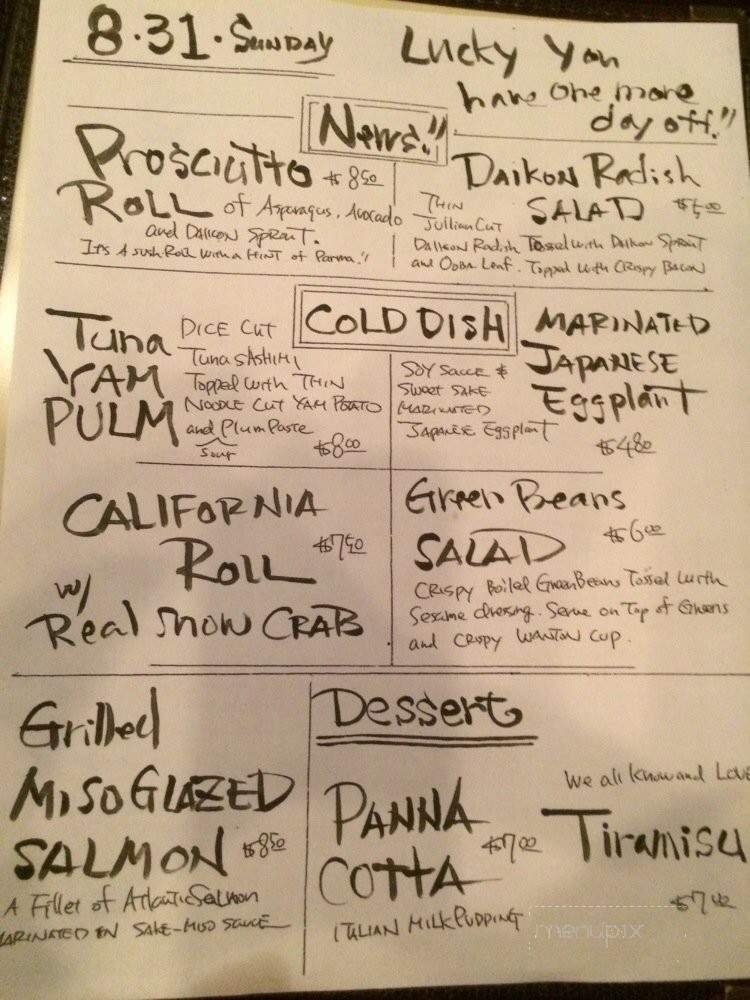 8.31. SUNDAY
Lucky You
have one more
day off!!
News!!
Prosciutto $8.50
ROLL of Asparagus, Avocado
and DAIKON SPROUT.
It's A sushi Roll with a HINT of Parma!!
DAIKON Radish
SALAD $5.00
THIN
Jullian CUT
DAIKON Radish Tossed with Daikon Sprout
and OOBA Leaf. Topped with CRispy Bacon
COLD DISH
Tuna
YAM
PULM
DICE CUT
Tuna SASHIMI
Topped with THIN
NOODLE CUT YAM POTATO
and Plum Paste
sour
$8.00
MARINATED
JAPANESE
Eggplant
SOY SAUCE &
Sweet SAKE
MARINATED
JAPANESE Eggplant
$4.80
CALIFORNIA
ROLL $7.50
w/
Real snow CRAB
Green Beans
SALAD $6.00
CRISPY Boiled Green Beans Tossed with
Sesame dressing. Serve on Top of Greens
and CRISPY WANTON CUP.
Grilled
MISO GLAZED
SALMON $8.50
A Fillet of Atlantic Salmon
MARINATED IN SAKE-MISO SAUCE
Dessert
PANNA
COTTA $7.00
ITALIAN MILK PUDDING
We all know and Love
Tiramisu
$7.00
menupix